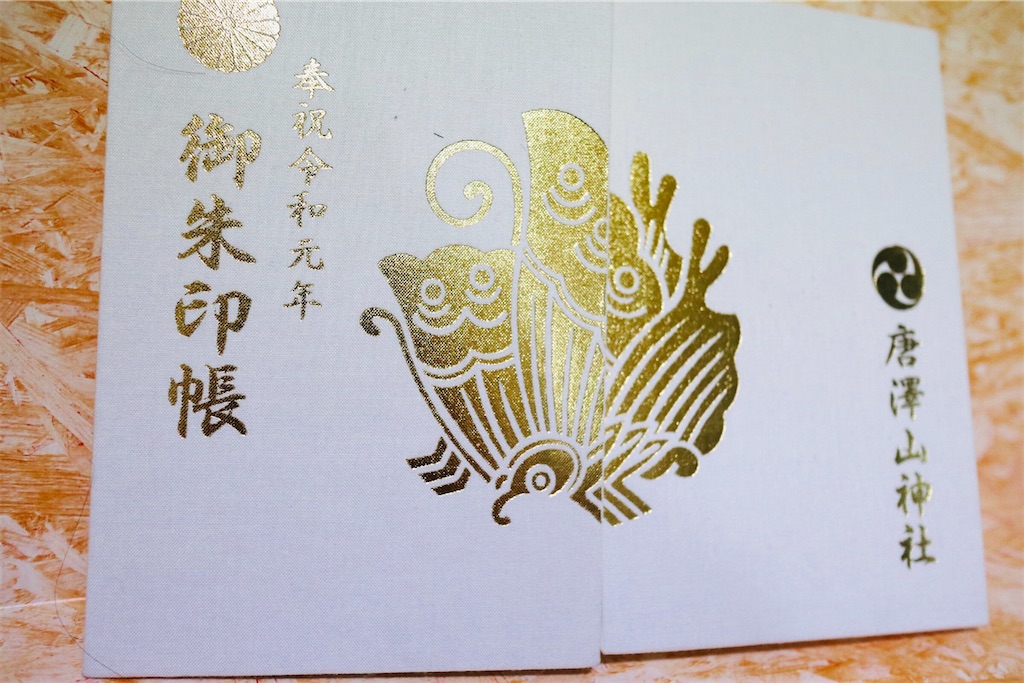 唐澤山神社
奉祝令和元年
御朱印帳